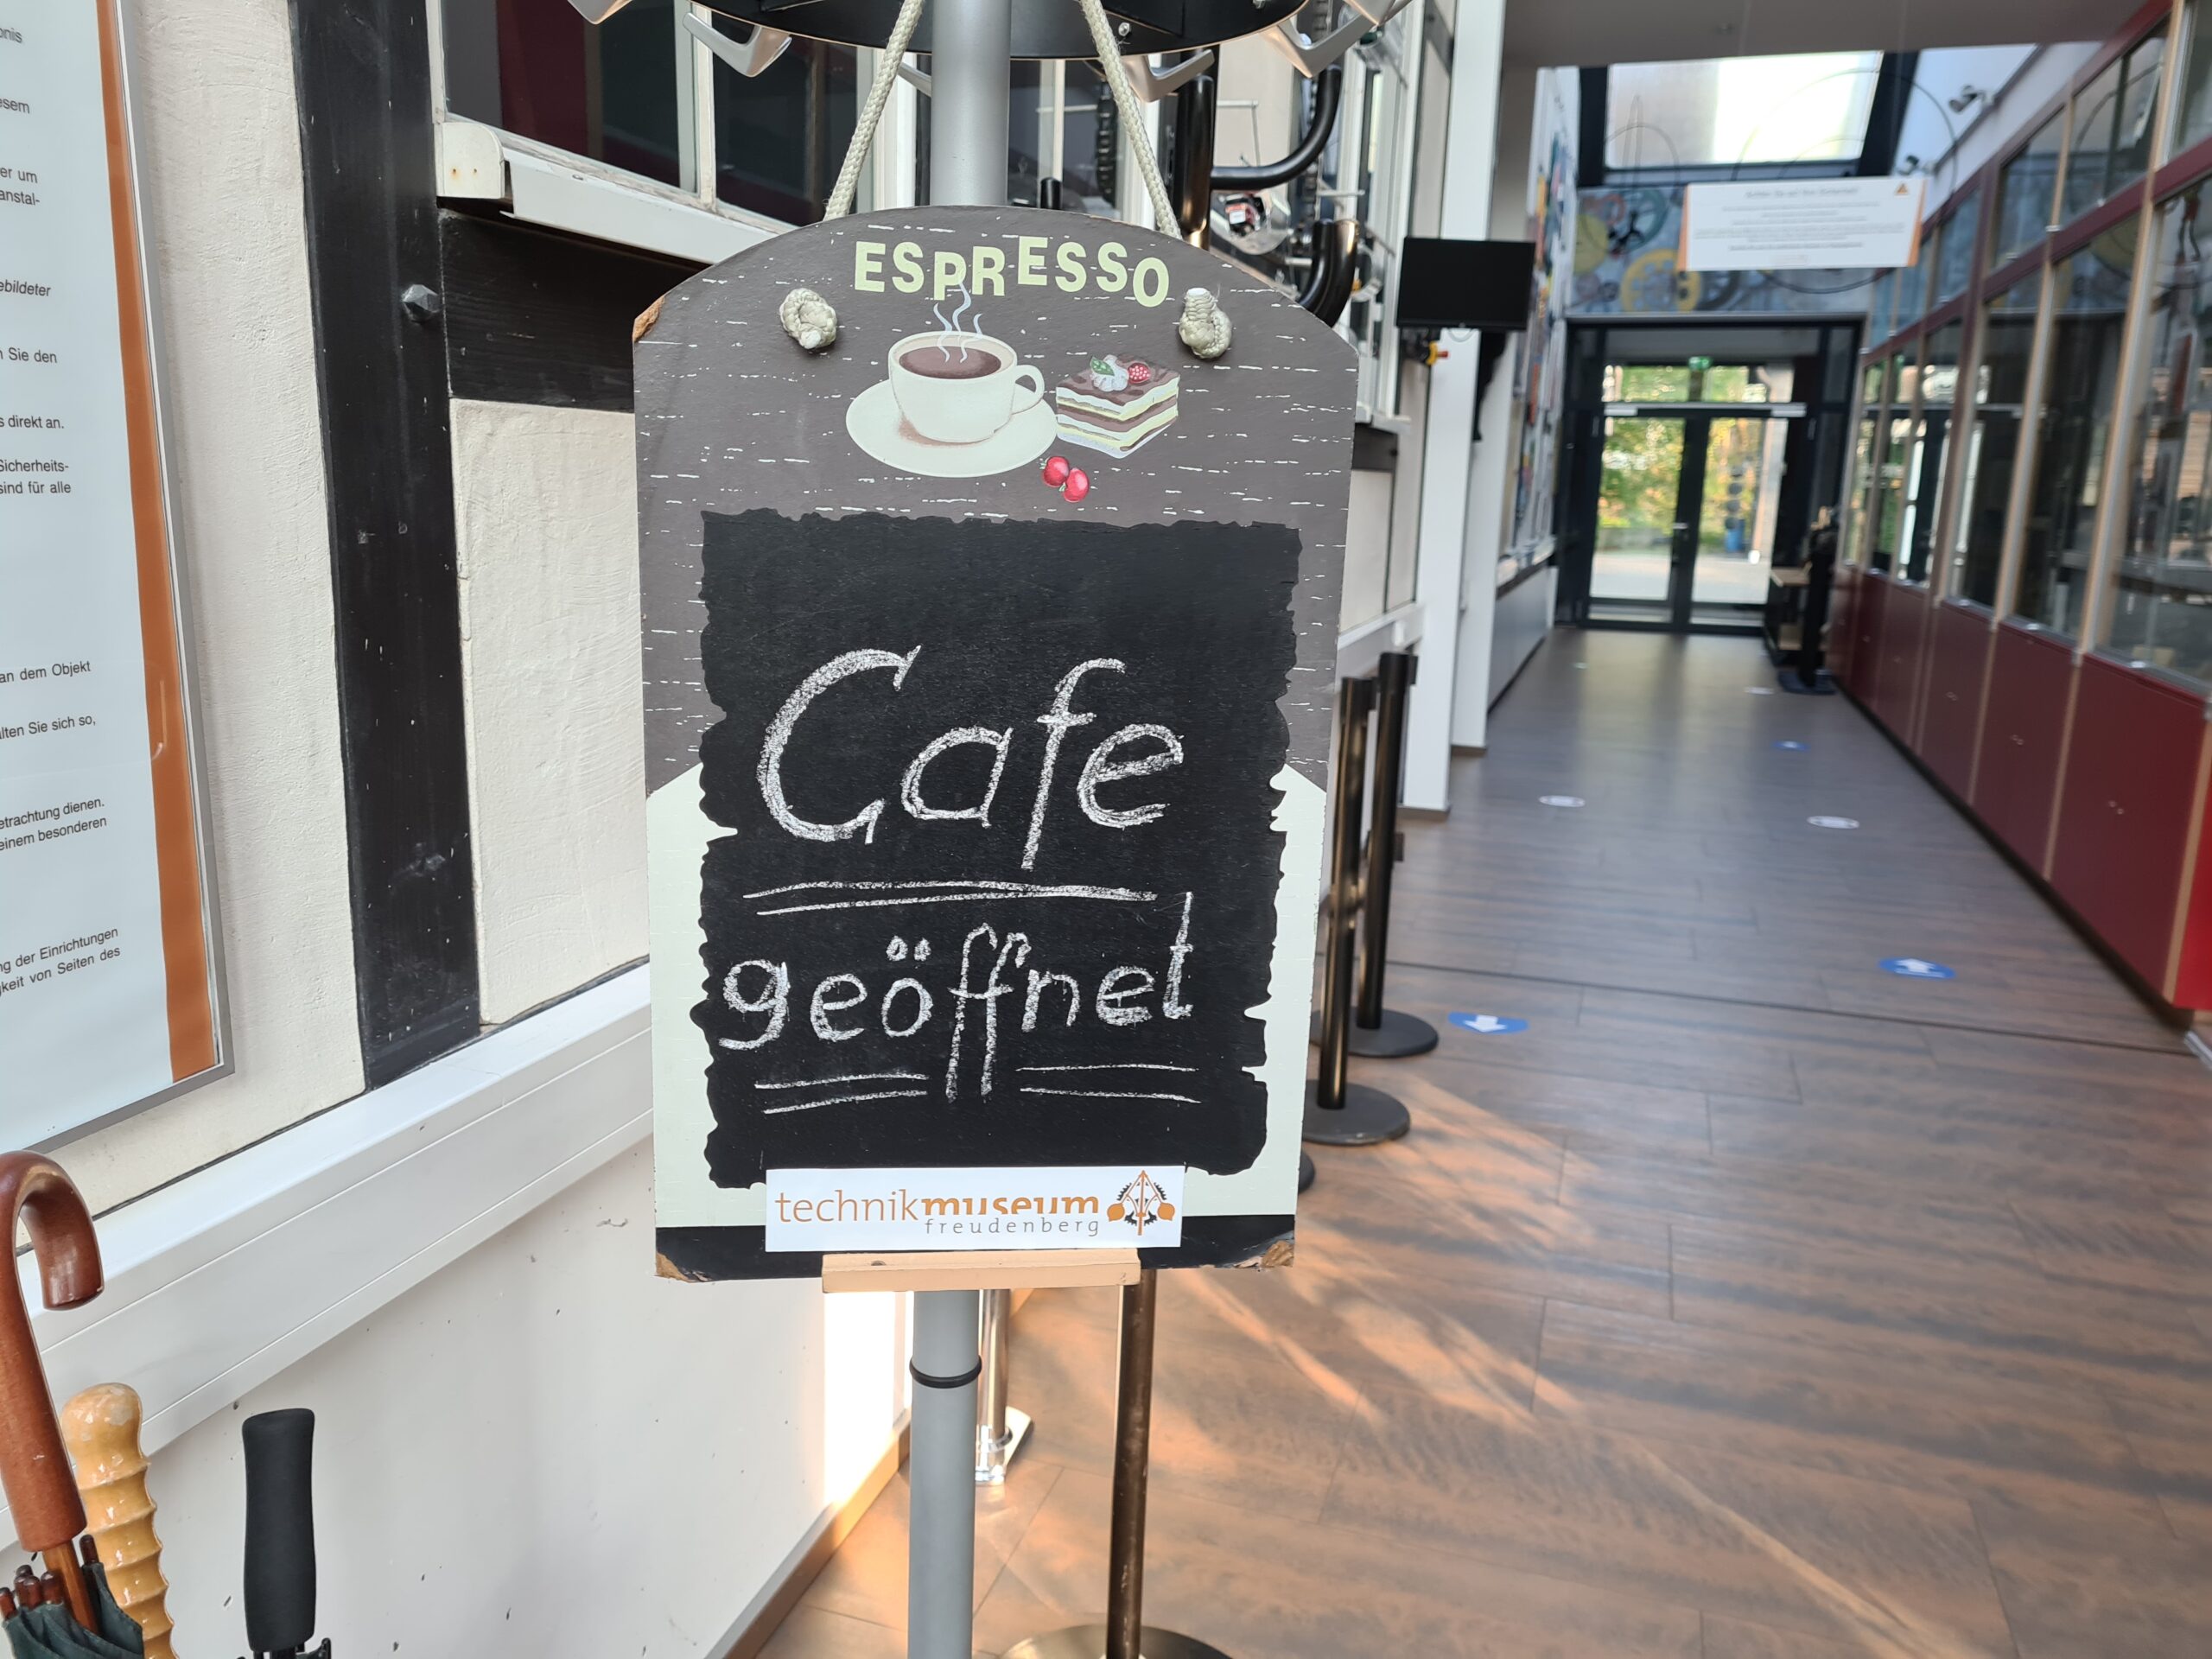 ESPRESSO
Cafe
geöffnet
technikmuseum
freudenberg
esem
er um
anstal-
ebildeter
n Sie den
s direkt an.
Sicherheits-
sind für alle
an dem Objekt
lten Sie sich so,
etrachtung dienen.
einem besonderen
ng der Einrichtungen
gkeit von Seiten des